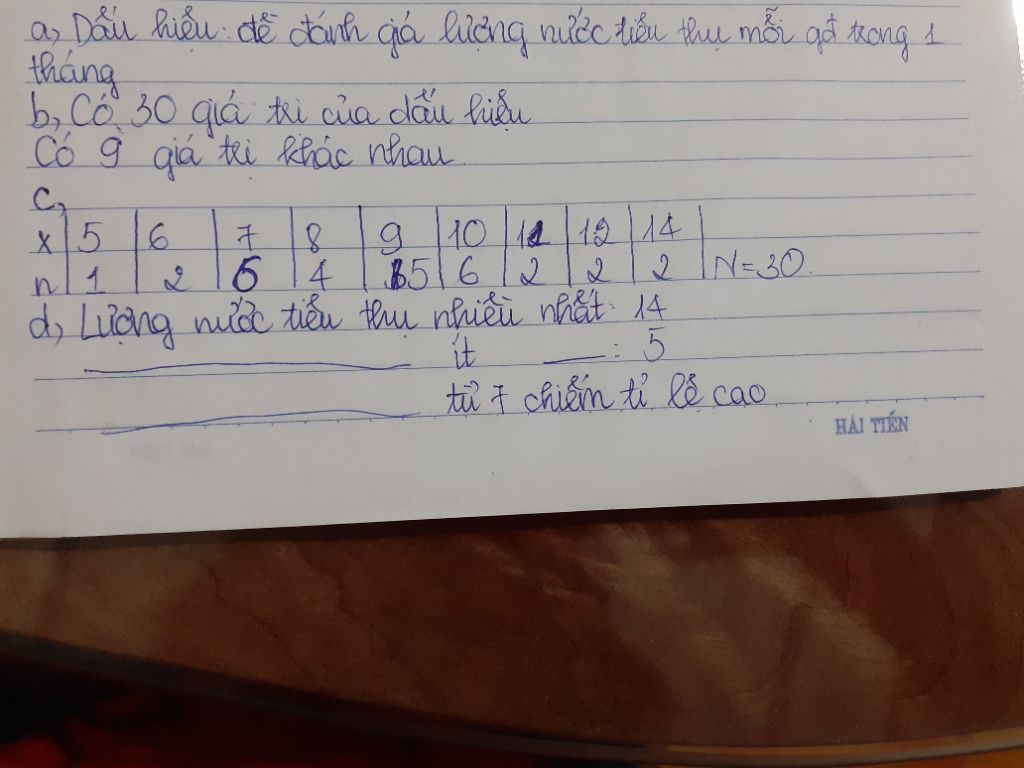 a, Dấu hiệu: để đánh giá lượng nước tiêu thụ mỗi gđ trong 1
tháng
b, Có 30 giá trị của dấu hiệu
Có 9 giá trị khác nhau
c,
x 5 6 7 8 9 10 11 12 14
n 1 2 6 4 5 6 2 2 2 N=30.
d, Lượng nước tiêu thụ nhiều nhất: 14
ít : 5
từ 7 chiếm tỉ lệ cao
HẢI TIẾN